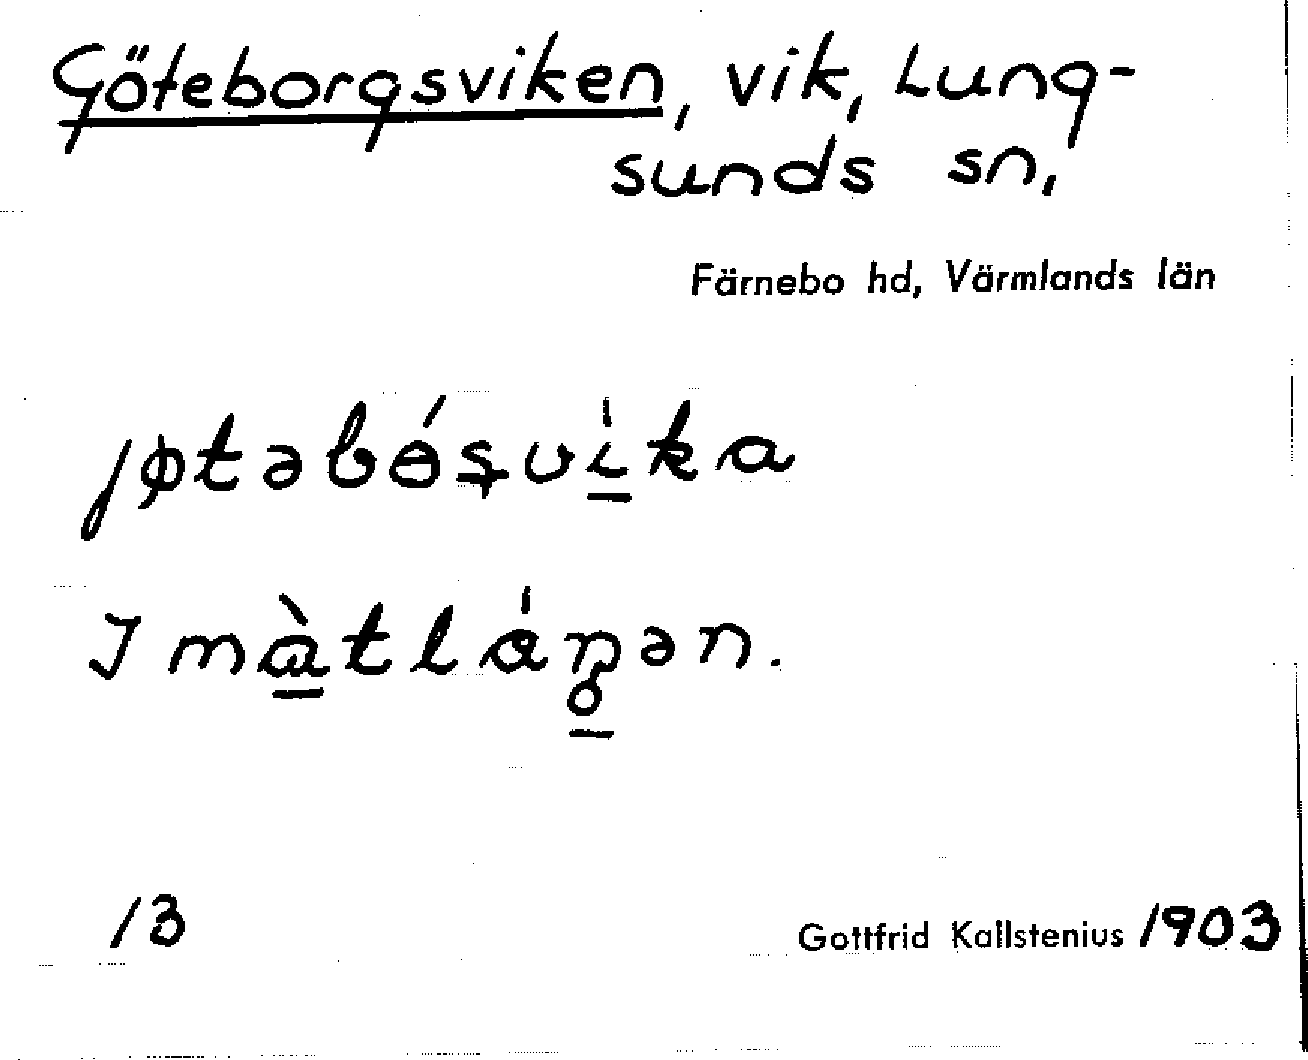 Göteborgsviken, vik, Lung-
sunds sn,
Färnebo hd, Värmlands län
jøtəbɵ́ʂvíka
I màtláŋən.
13
Gottfrid Kallstenius 1903